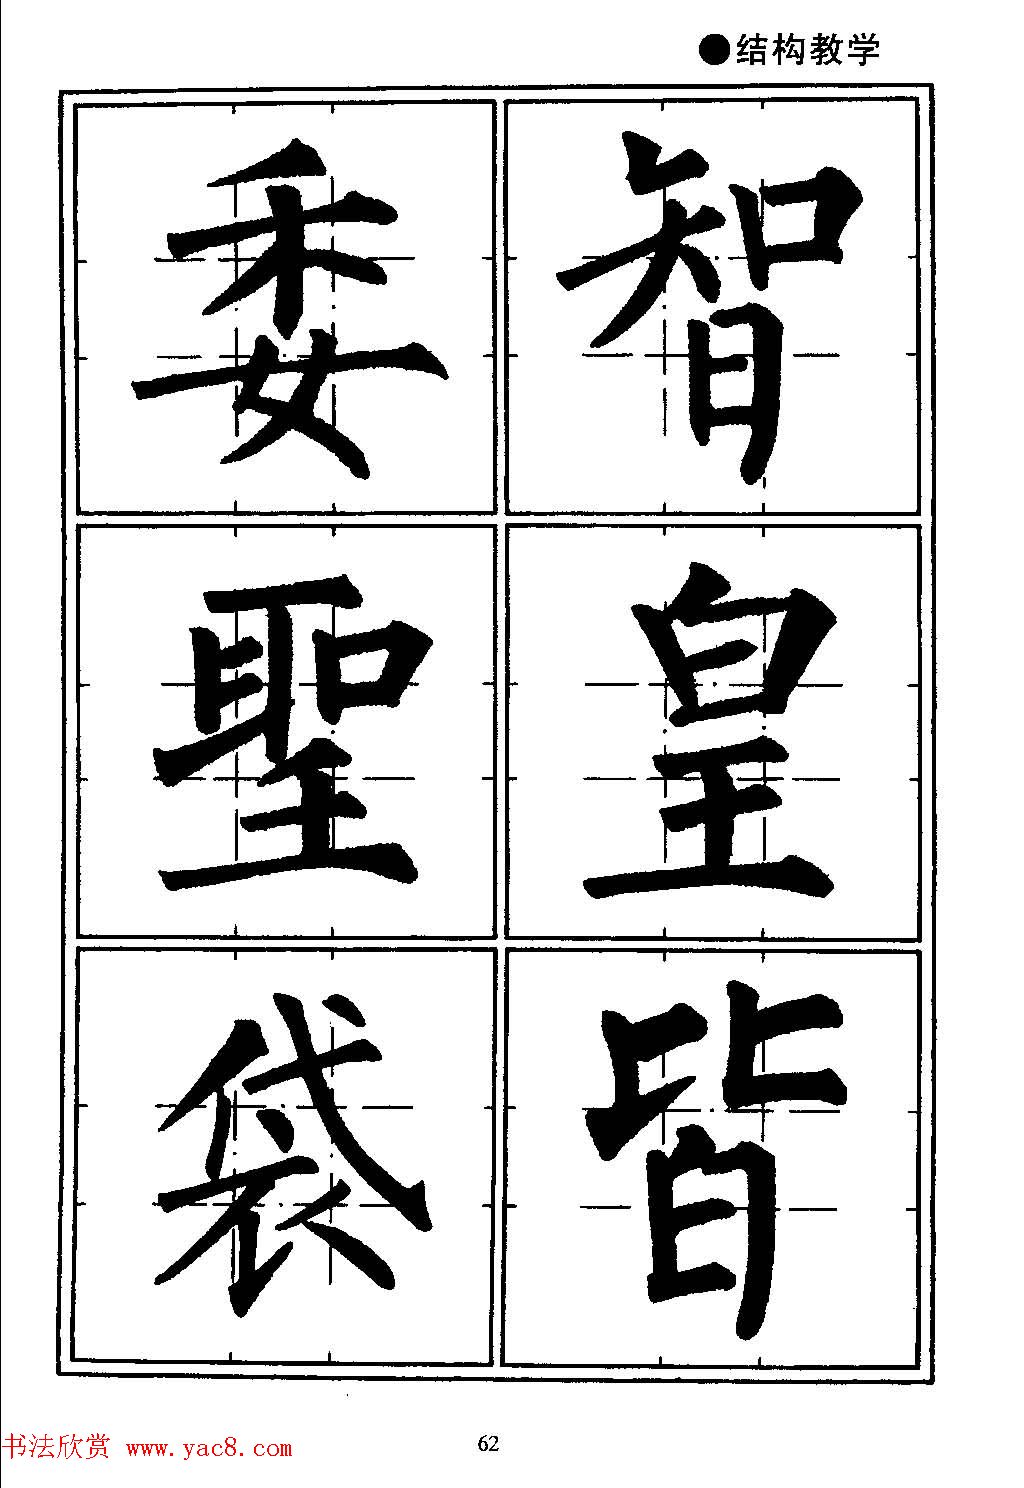 ●结构教学
智 委
皇 聖
皆 袋
书法欣赏 www.yac8.com
62